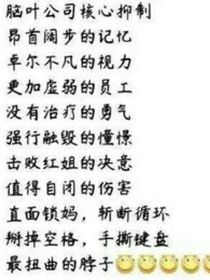 脑叶公司核心抑制
昂首阔步的记忆
卓尔不凡的视力
更加虚弱的员工
没有治疗的勇气
强行融毁的憧憬
击败红姐的决意
值得自闭的伤害
直面锁妈，斩断循环
掰掉空格，手撕键盘
最扭曲的脖子